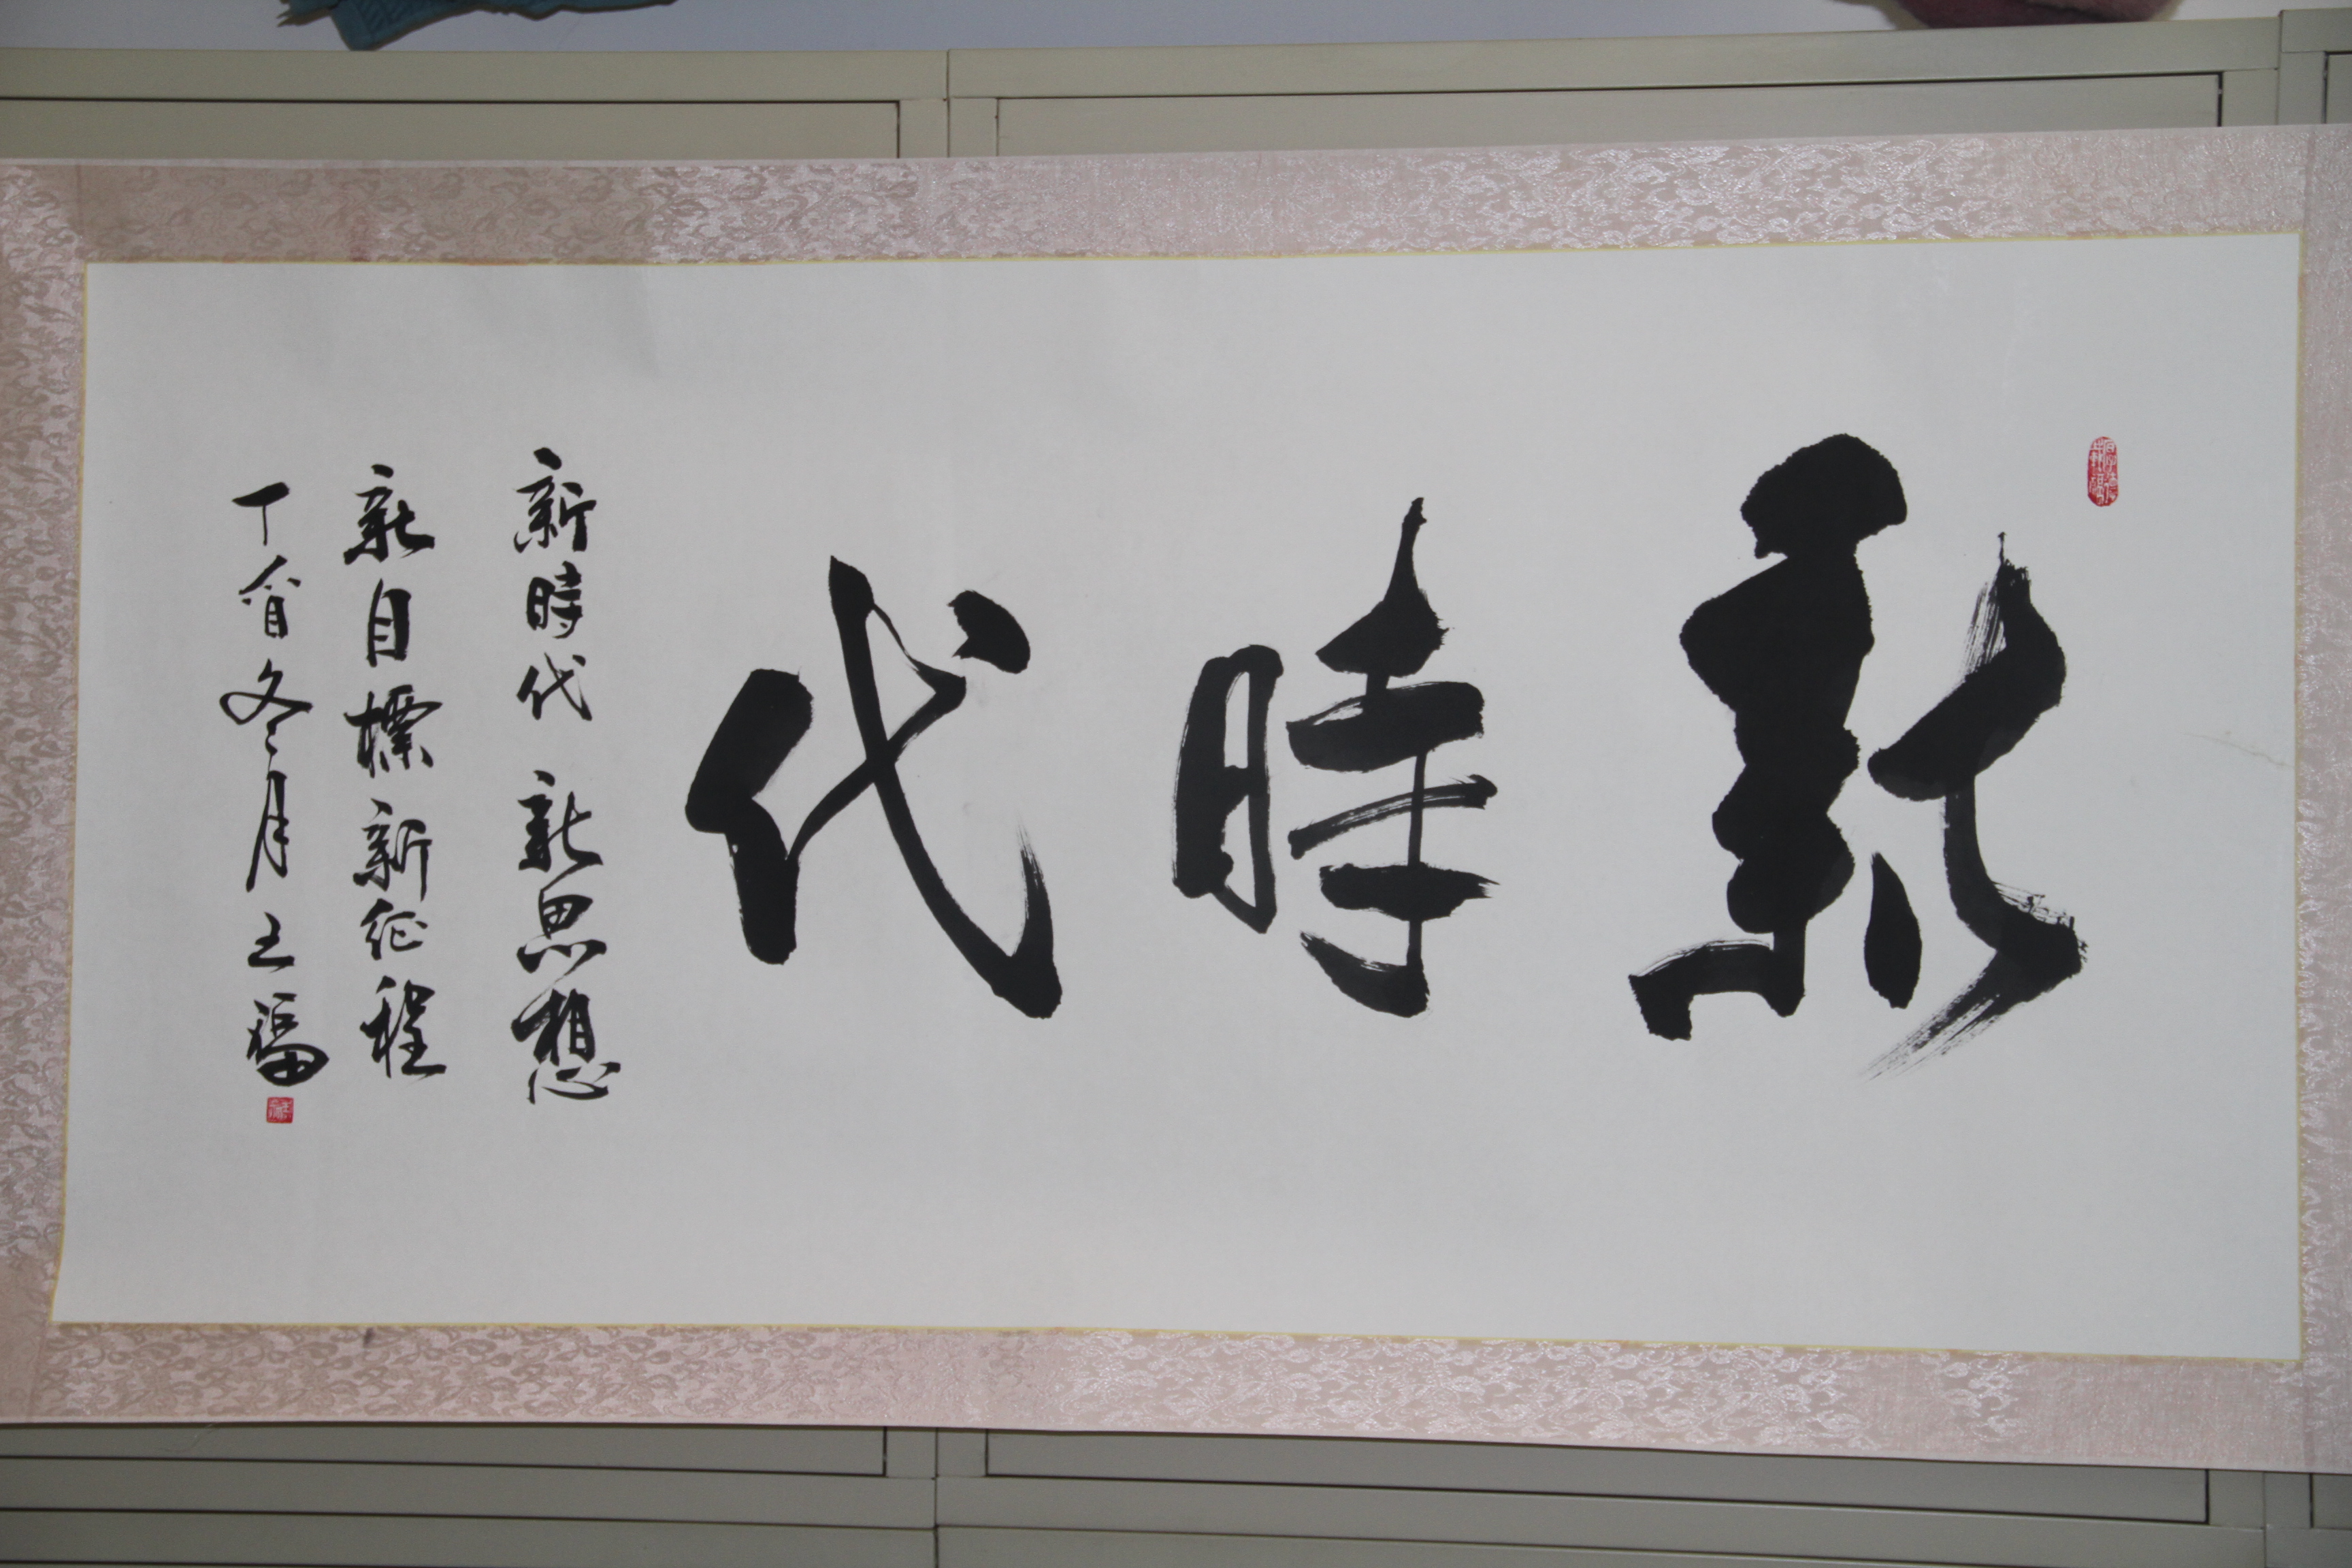 新時代
新時代 新思想
新目標新征程
丁酉冬月王福